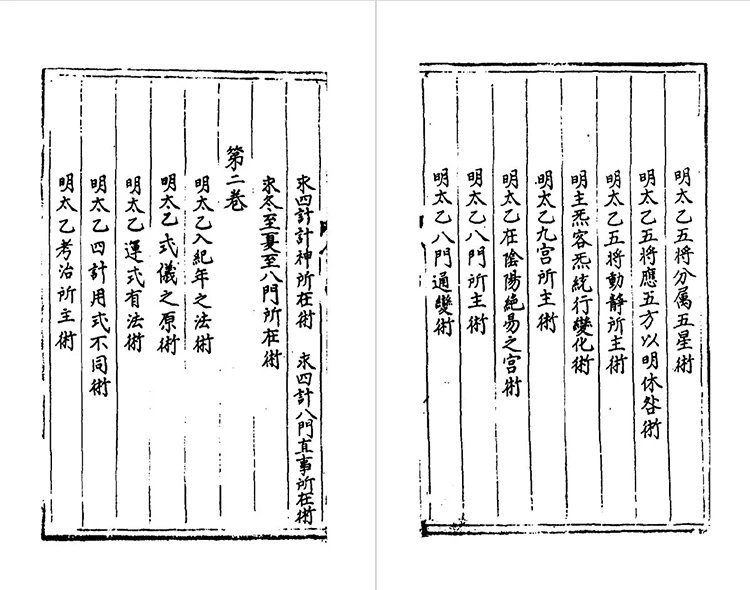 明太乙五將分屬五星術
明太乙五將應五方以明休咎術
明太乙五將動靜所主術
明主炁容炁統行變化術
明太乙九宫所主術
明太乙在陰陽絶易之宫術
明太乙八門所主術
明太乙八門通變術
求四計計神所在術 求四計八門直事所在術
求冬至夏至八門所在術
第二卷
明太乙入紀年之法術
明太乙式儀之原術
明太乙運式有法術
明太乙四計用式不同術
明太乙考治所主術